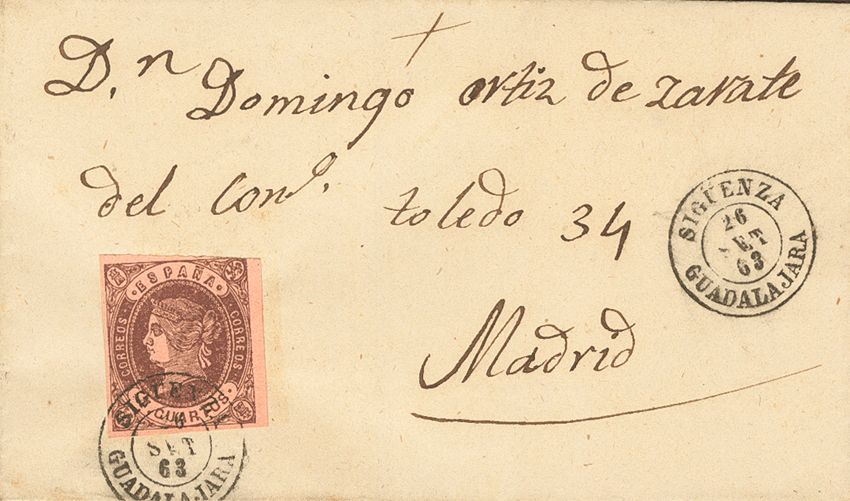 D.n Domingo ortiz de zarate
del Con.o toledo 34
Madrid
SIGÜENZA
26
SET
63
GUADALAJARA
ESPAÑA
CORREOS
CORREOS
CUARTOS
SET
63
GUADALAJARA